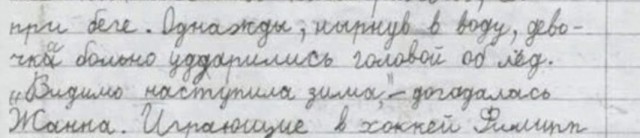 при беге. Однажды, нырнув в воду, дево-
чка больно ударились головой об лёд.
„Видимо наступила зима," – догадалась
Жанна. Играющие в хоккей Филипп